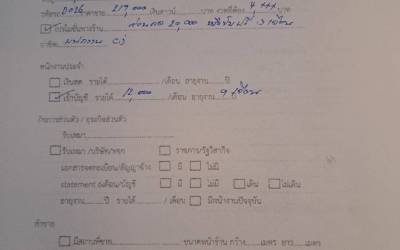 รหัสรถ 2026 ราคาขาย 219,000 เงินดาวน์ บาท งวดที่ต้อง 4,444 บาท
โปรโมชั่นทางร้าน 20,000 3 เดือน
อาชีพ พนักงาน CJ
พนักงานประจำ
เงินสด รายได้ /เดือน อายุงาน ปี
เข้าบัญชี รายได้ 12,000 /เดือน อายุงาน 9 เดือน ปี
กิจการส่วนตัว / ธุรกิจส่วนตัว
รับเหมา
รับเหมา /บริษัท/หจก ราชการ/รัฐวิสาหกิจ
เอกสารจดทะเบียน/สัญญาจ้าง มี ไม่มี
statement 6เดือน/บัญชี มี ไม่มี เดิน ไม่เดิน
อายุงาน ปี รายได้ / เดือน มีหน้างานปัจจุบัน
ค้าขาย
มีสถานที่ขาย ขนาดหน้าร้าน กว้าง เมตร ยาว เมตร